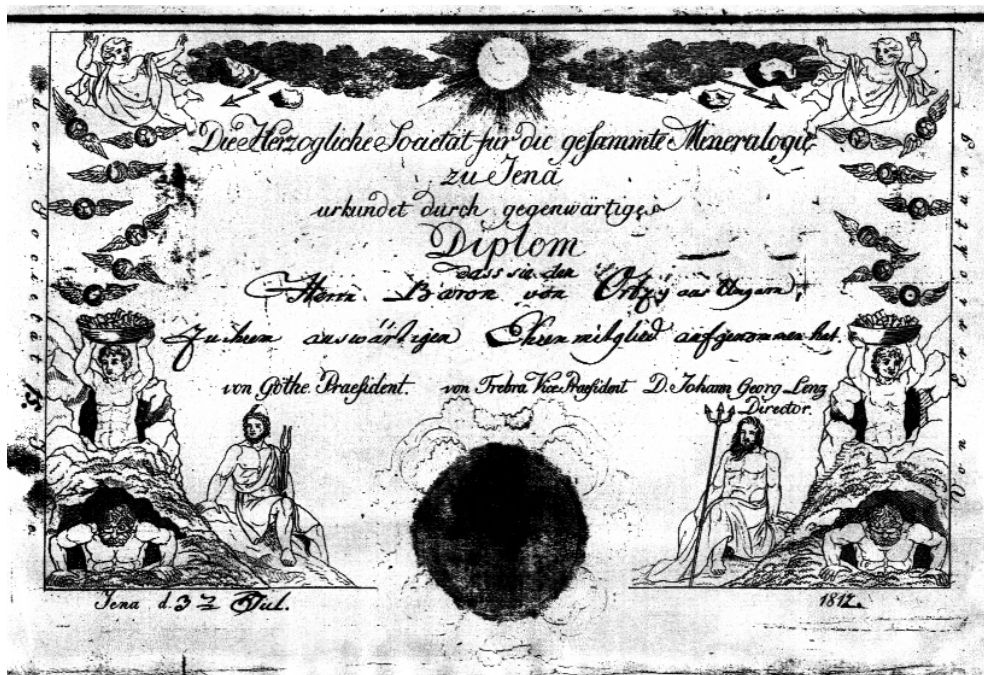 Die Herzogliche Societät für die gesammte Mineralogie
zu Jena
urkundet durch gegenwärtiges
Diplom
dass sie den
Herrn Baron von Orczy aus Ungarn,
zu ihrem auswärtigen Ehrenmitglied aufgenommen hat.
von Göthe Praesident. von Trebra Vice Praesident D. Johann Georg Lenz
Director.
Jena d. 3 Jul. 1812.
der Societät
Von Errichtung